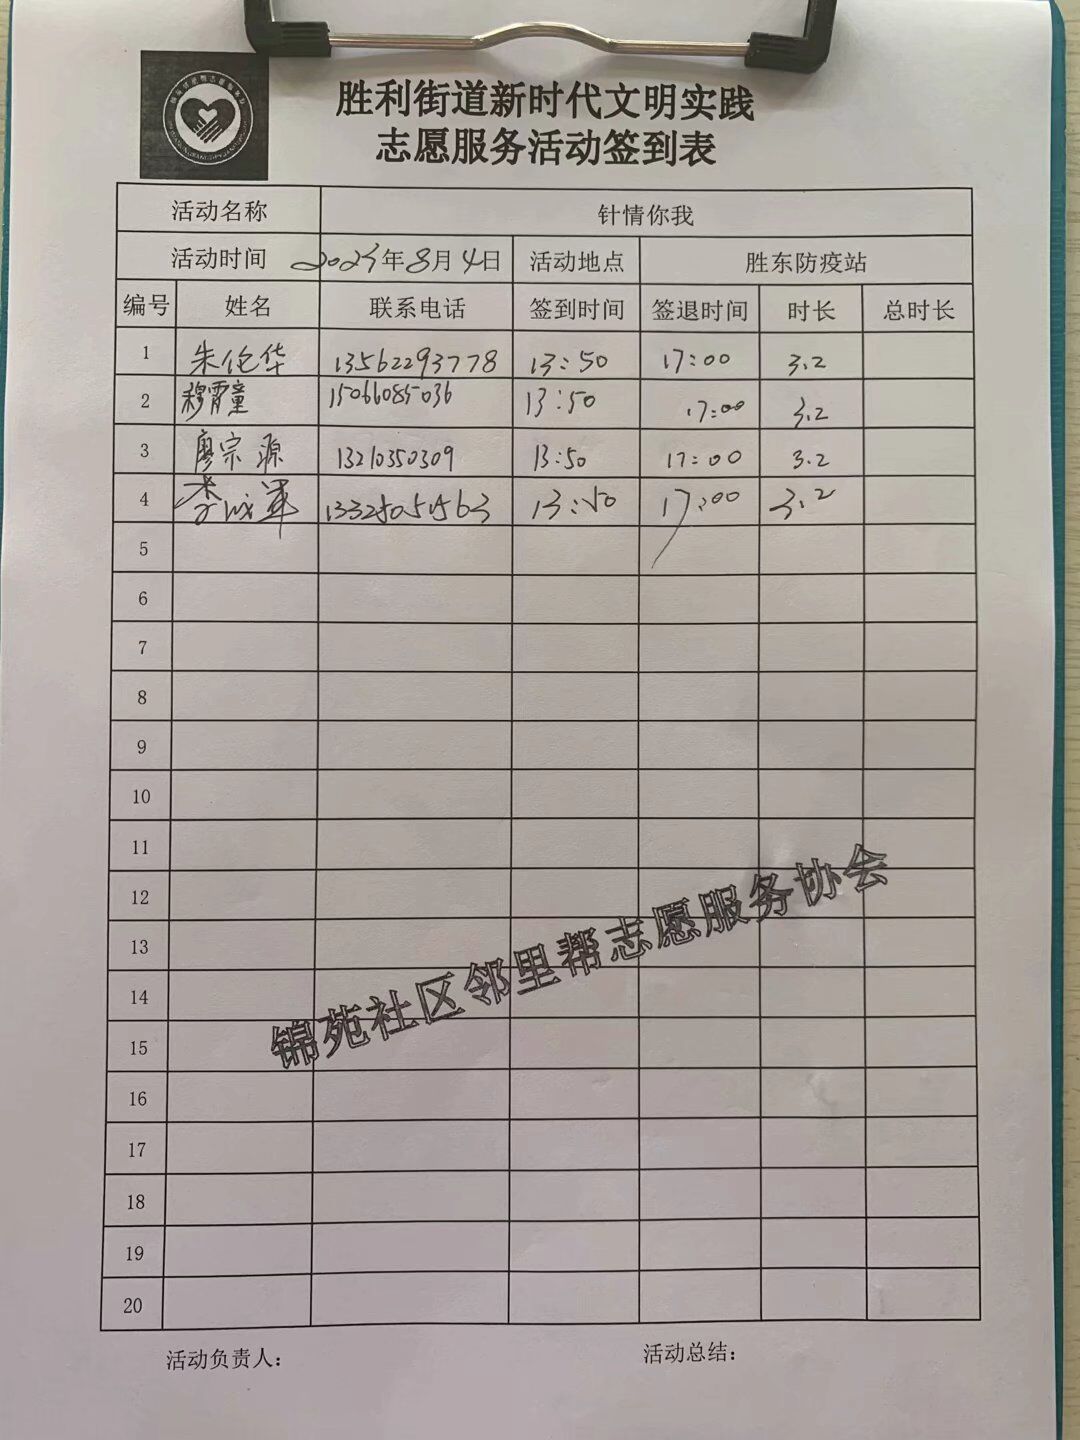 胜利街道新时代文明实践
志愿服务活动签到表
活动名称 针情你我
活动时间 2023年8月4日 活动地点 胜东防疫站
编号 姓名 联系电话 签到时间 签退时间 时长 总时长
1 朱伦华 13562293778 13:50 17:00 3.2
2 穆霄童 15066085036 13:50 17:00 3.2
3 廖宗源 13210350309 13:50 17:00 3.2
4 李成军 13:50 17:00 3.2
5
6
7
8
9
10
11
12
13
14
15
16
17
18
19
20
锦苑社区邻里帮志愿服务协会
活动负责人： 活动总结：